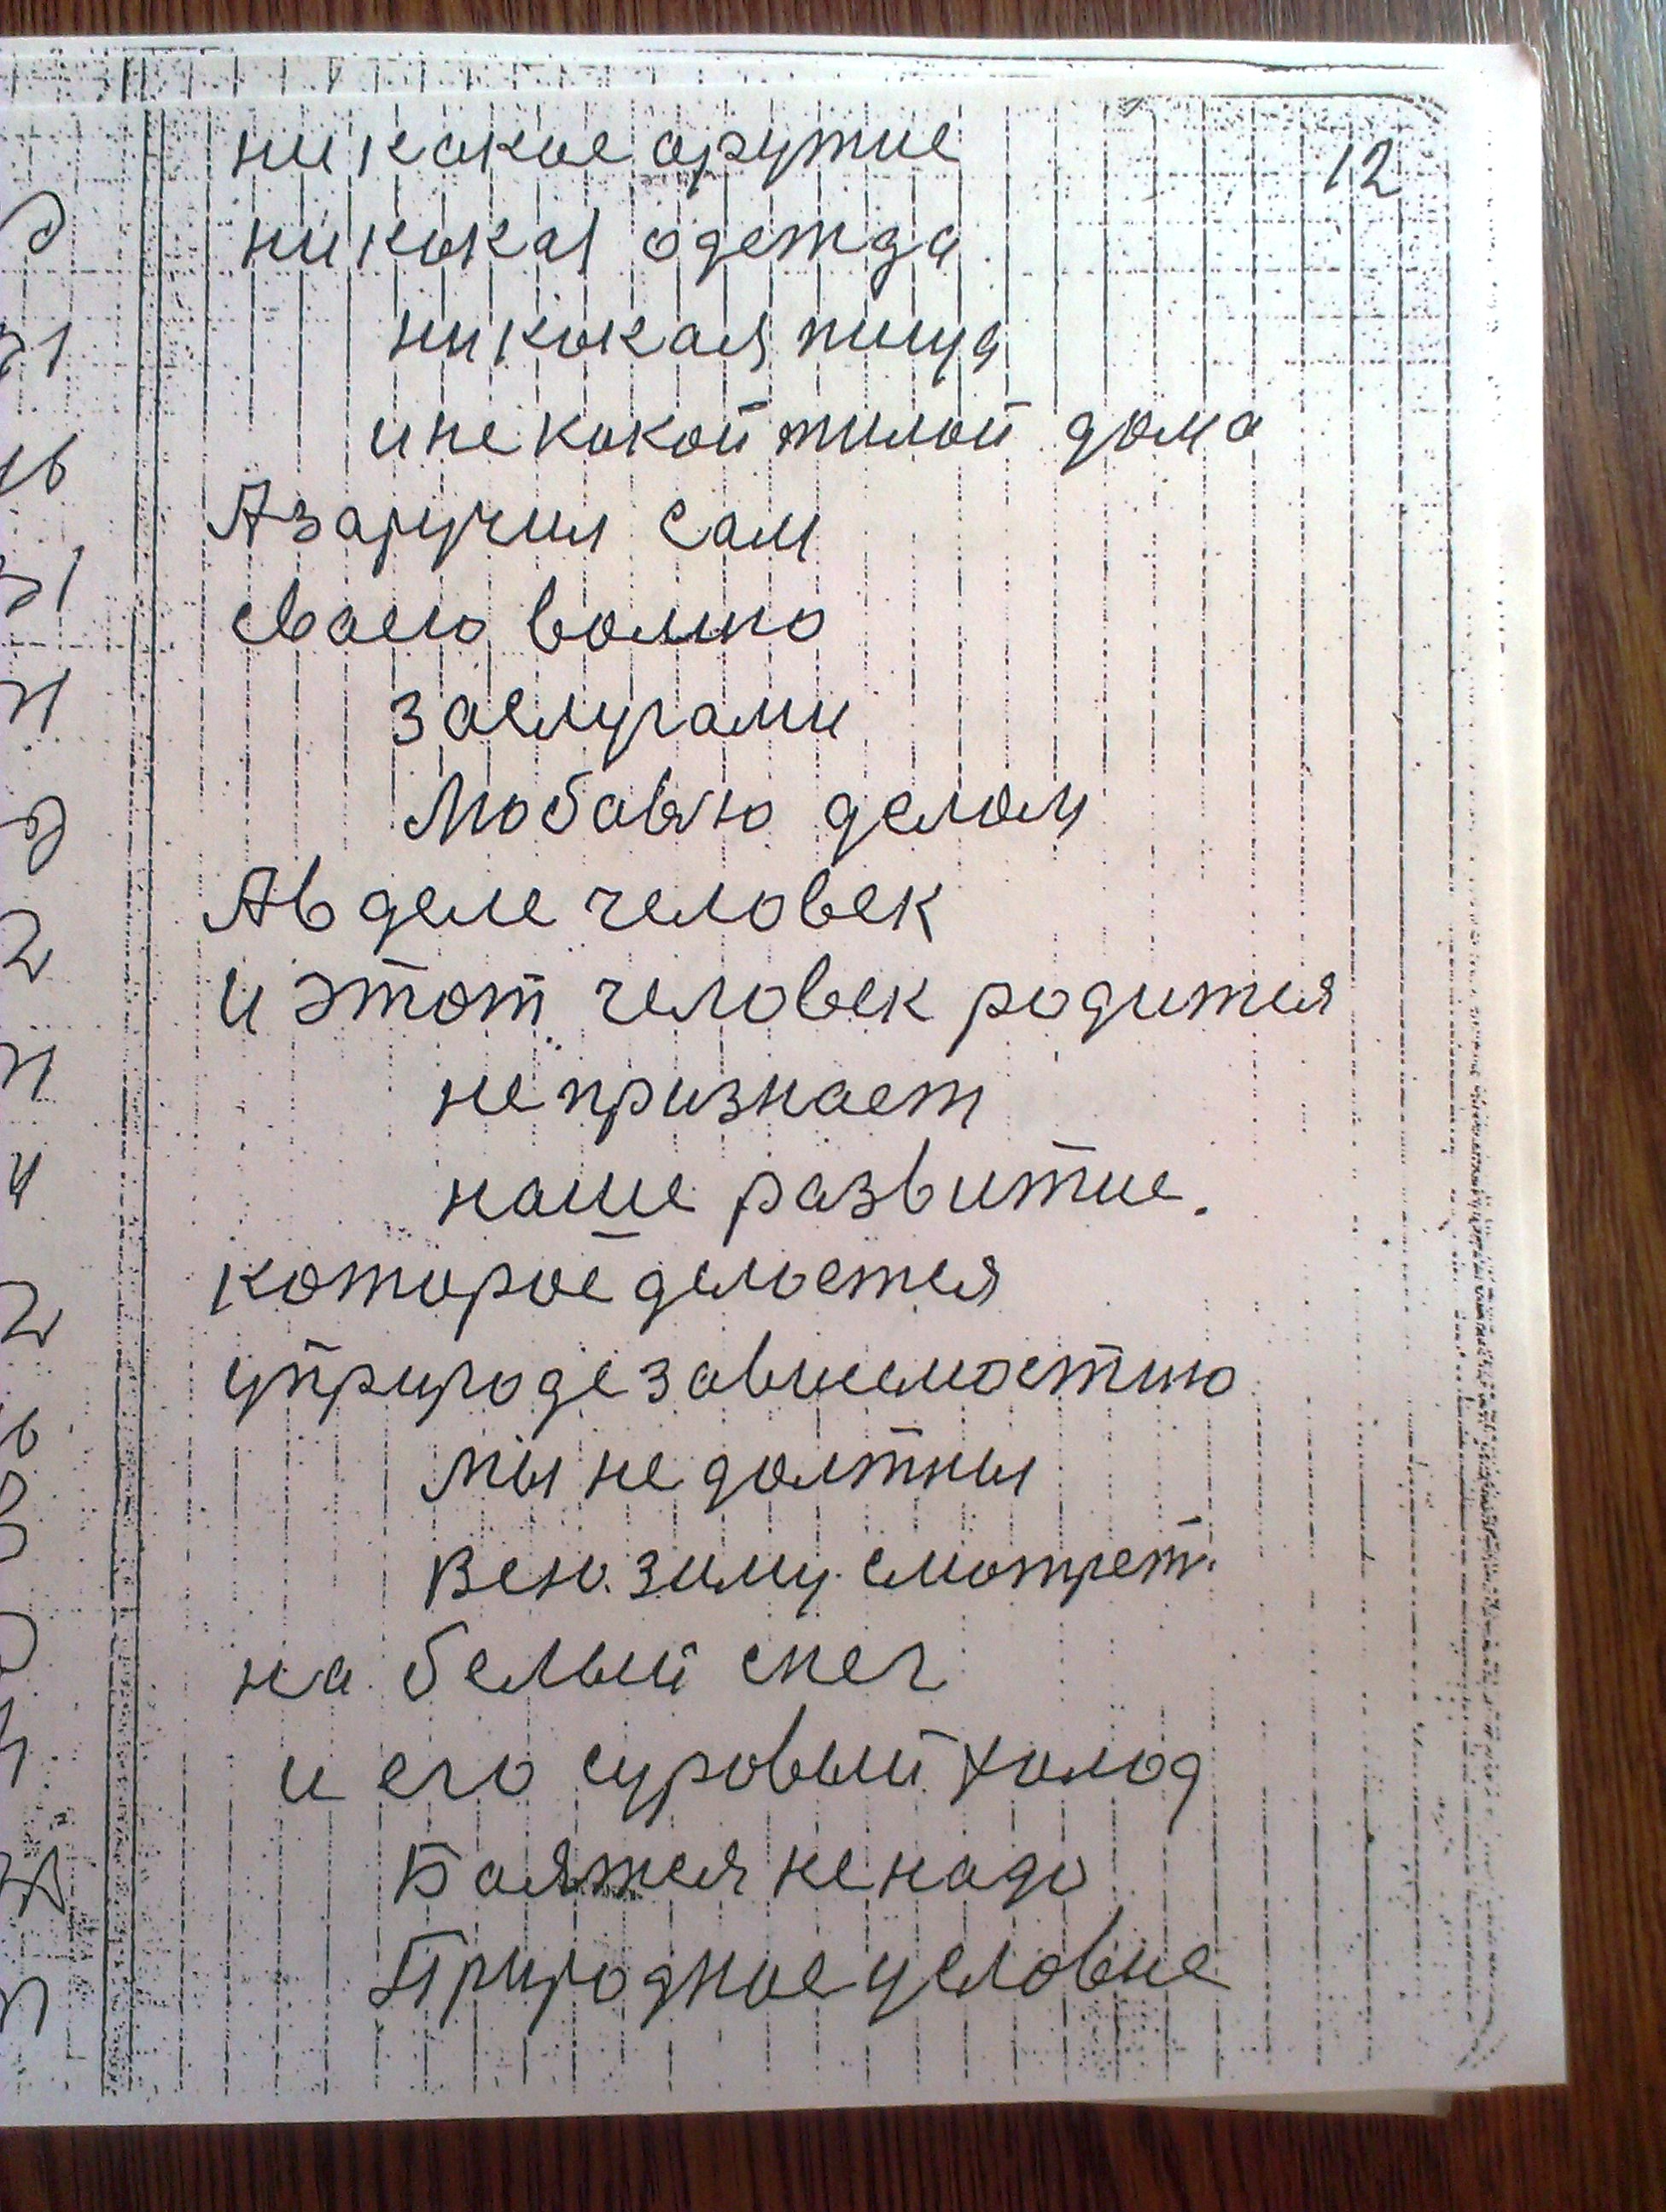 12
никокое орутие
никокая одежда
никокая пища
и не кокой тилой дома
А заручил сам
сваею волию
заслугами
Любавью делом
А в деле человек
и этот человек родится
не признает
наше развитие.
которое делоется
у природе зависемостию
мы не долтны
Всю зиму смотрет
на белый снег
и его суровый холод
Боятся не надо
Природное условие